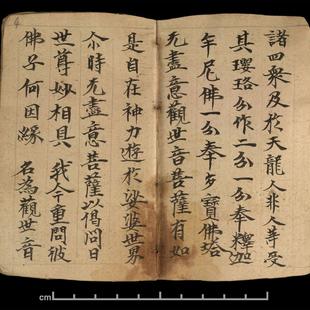 諸四衆及於天龍人非人等受
其瓔珞分作二分一分奉釋迦
牟尼佛一分奉多寶佛塔
无盡意觀世音菩薩有如
是自在神力遊於娑婆世界
尒時无盡意菩薩以偈問曰
世尊妙相具 我今重問彼
佛子何因緣 名為觀世音
cm